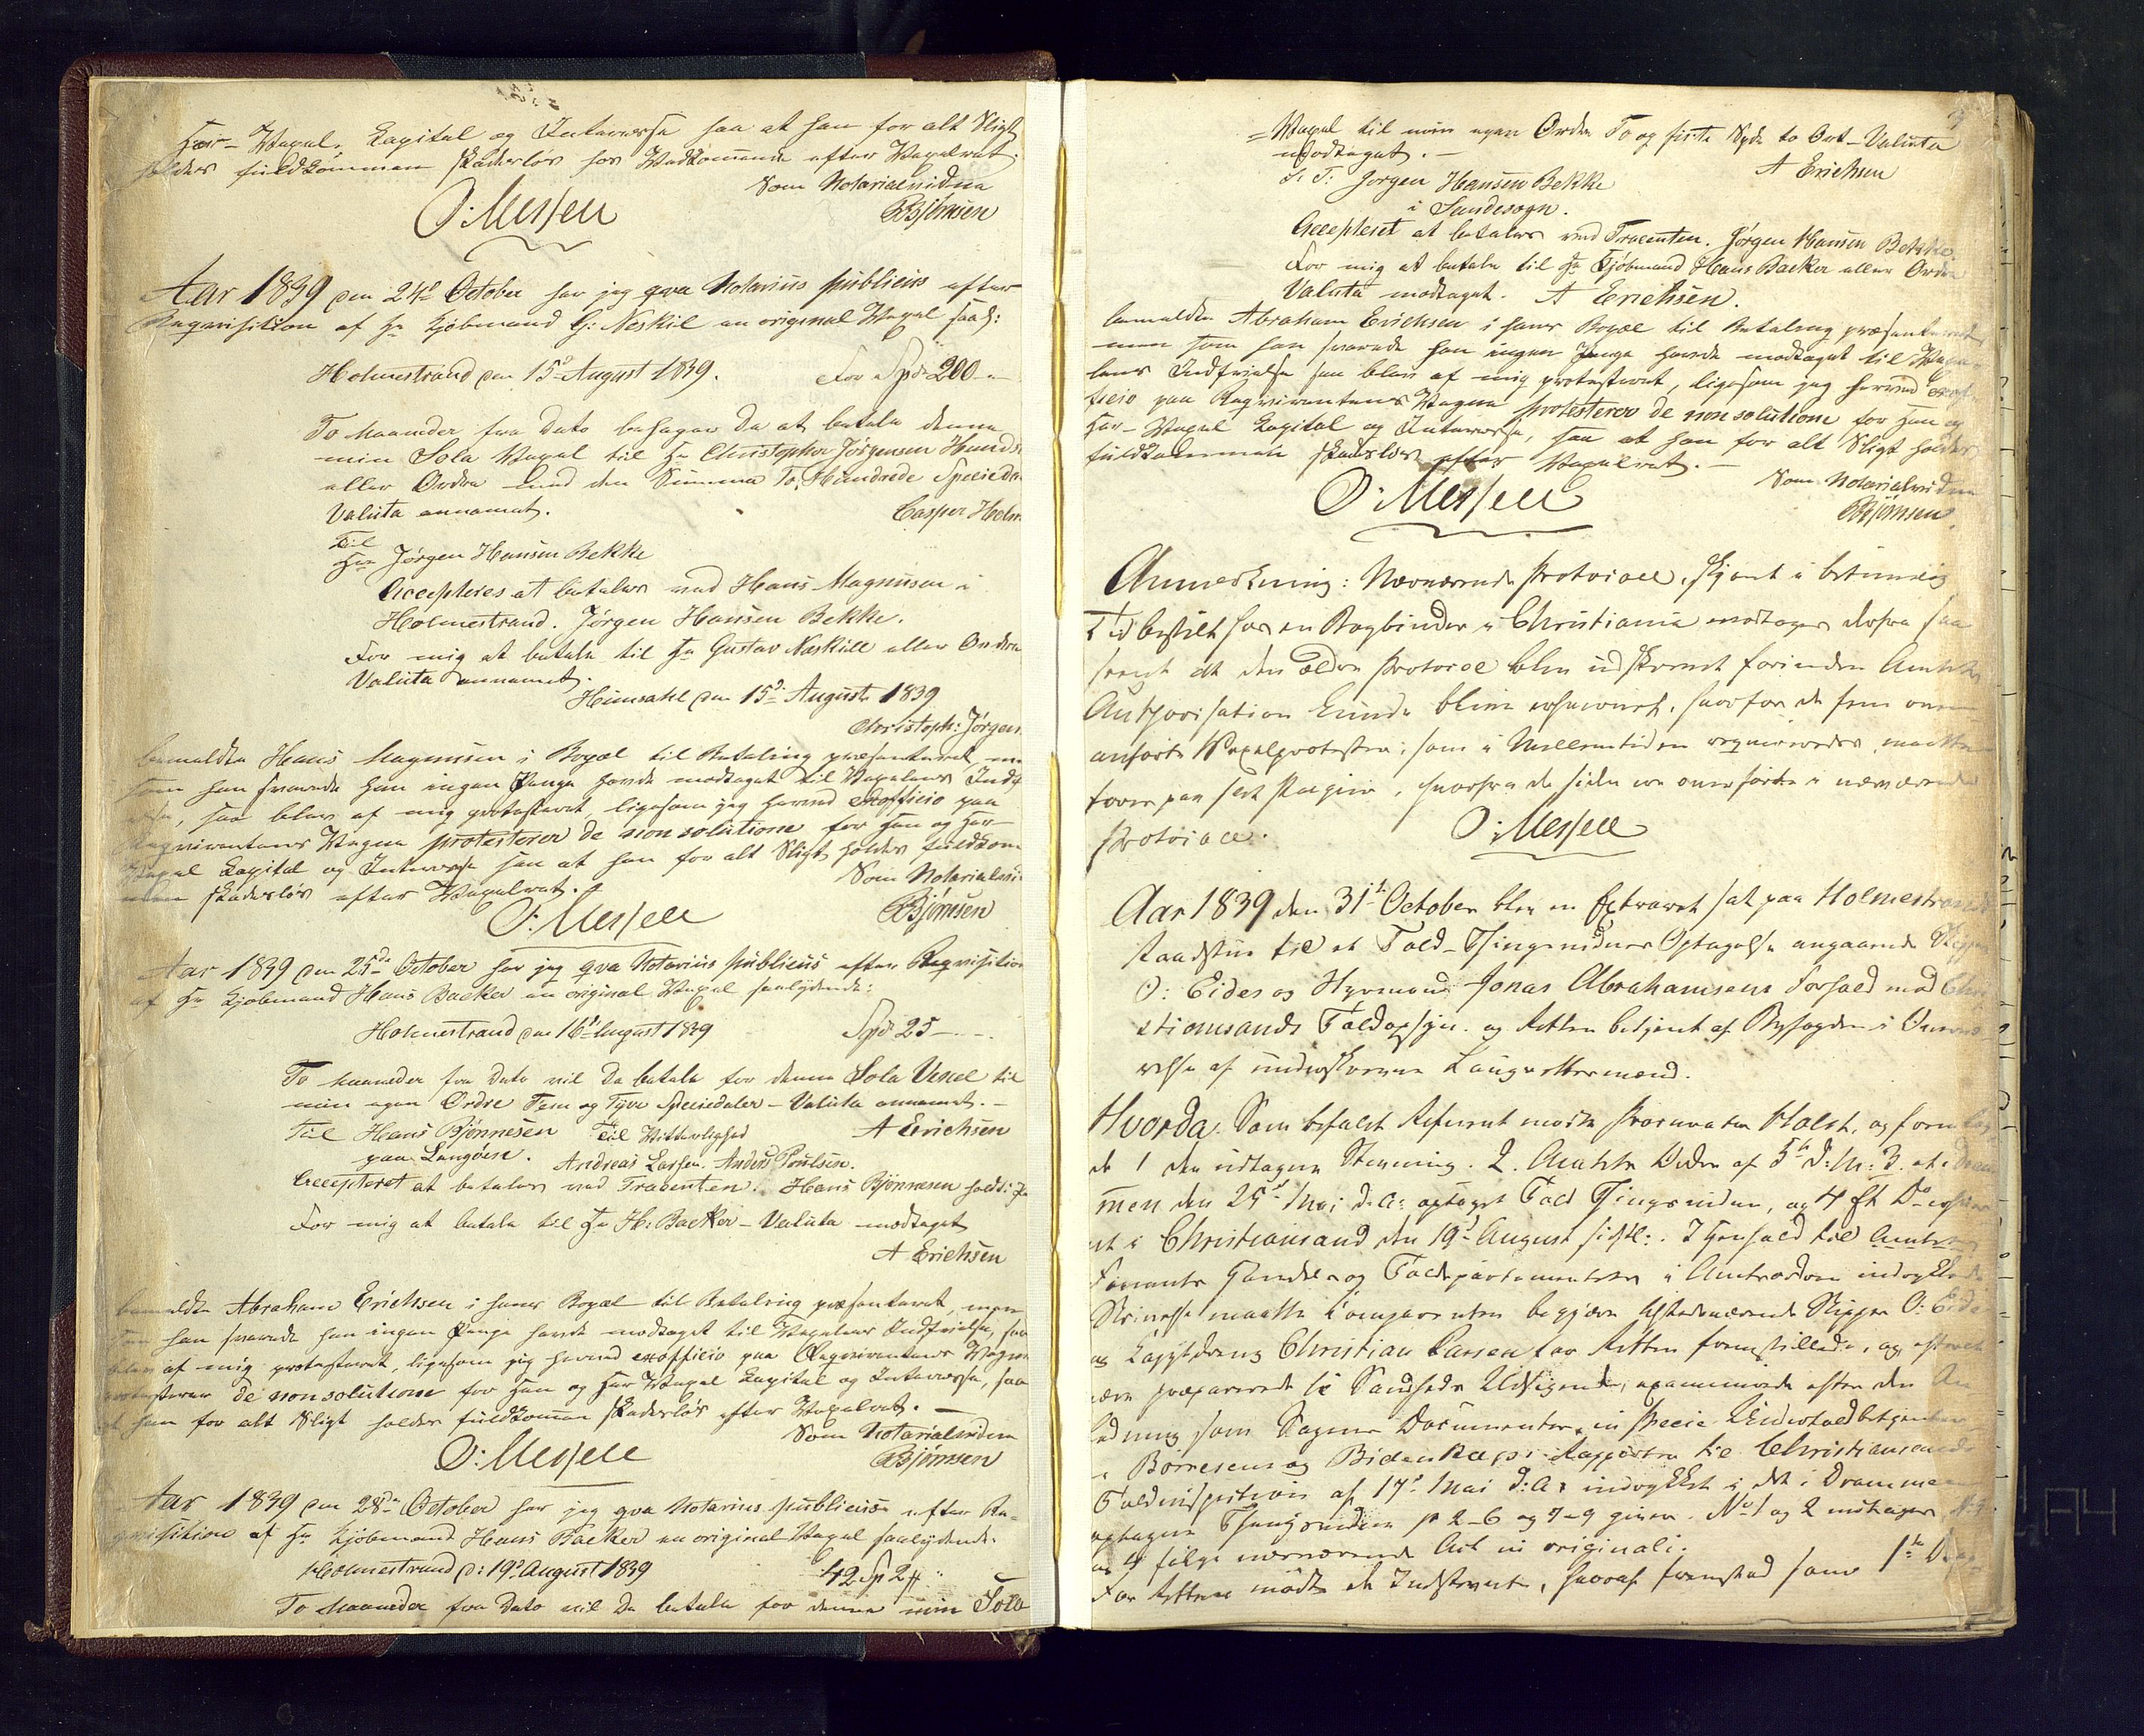 Her-Wexel, Capital og Interesse saa at han for alt Sligt
holdes fuldkommen skadesløs hos Vedkommende efter Wexelret.
Som Notarialvidne
O: Messell
Bjørnsen
Aar 1839 den 24de October har jeg qva Notarius publicus efter
Requisition af Hr Kjøbmand G: Neskil en original Wexel saal:
Holmestrand den 15de August 1839. For Spd 200 -
To Maaneder fra Dato behager De at betale denne
min Sola Wexel til Hr Christopher Jørgensen
eller Ordre med den Summa To Hundrede Speciedlr
Valuta annamet. Casper Holm
Til
Hr Jørgen Hansen Bekke
Accepteres at betales ved Hans Magnusen i
Holmestrand. Jørgen Hansen Bekke.
For mig at betale til Hr Gustav Neskill eller Ordre
Valuta annamet.
den 15de August 1839
Christoph: Jørgen
bemeldte Hans Magnusen i Bopæl til Betaling præsenteret, men
som han svarede han ingen Penge havde modtaget til Wexelens Indf
saa blev af mig protesteret, ligesom jeg herved exofficio paa
Reqvirentens Vegne protesterer de non solutione for Hen og Her
Wexel Capital og Interesse saa at han for alt Sligt holdes fuldkom
men skadesløs efter Wexelret.
Som Notarialvidne
O: Messell
Bjørnsen
Aar 1839 den 25de October har jeg qva Notarius publicus efter Reqvisition
af Hr Kjøbmand Hans Backer en original Wexel saalydende:
Holmestrand den 16de August 1839 Spd 25 -
To Maaneder fra Dato vil De betale for denne Sola Vexel til
min egen Ordre Fem og Tyve Speciedaler - Valuta annamet. -
Til Hans Bjønnesen Til Vitterlighed A Erichsen
paa Langøen. Andreas Larsen. Anders Poulsen.
Accepteret at betales ved Tracenten. Hans Bjønnesen
For mig at betale til Hr H: Backer - Valuta modtaget
A Erichsen
bemeldte Abraham Erichsen i hans Bopæl til Betaling præsenteret, men
som han svarede han ingen Penge havde modtaget til Wexelens Indfrielse, saa
blev af mig protesteret, ligesom jeg herved exofficio paa Reqvirentens Vegne
protesterer de non solutione for Hen og Her Wexel Capital og Interesse, saa
at han for alt Sligt holdes fuldkommen skadesløs efter Wexelret. -
Som Notarialvidne
O: Messell
Bjørnsen
Aar 1839 den 28de October har jeg qva Notarius publicus efter Re-
qvisition af Hr Kjøbmand Hans Backer en original Wexel saalydende.
Holmestrand d: 19de August 1839 42 Sp 2
To Maaneder fra Dato vil De betale for denne min Sola
= Wexel til min egen Ordre To og Spd to Ort - Valuta
modtaget. -
A Erichsen
S: T: Jørgen Hansen Bekke
i Sandesogn.
Accepteret at betales ved Tracenten. Jørgen Hansen Bekke.
For mig at betale til Hr Kjøbmand Hans Backer eller Ordre
Valuta modtaget. A Erichsen.
bemeldte Abraham Erichsen i hans Bopæl til Betaling præsenteret
men som han svarede han ingen Penge havde modtaget til Wexe-
lens Indfrielse saa blev af mig protesteret, ligesom jeg herved exof-
ficio paa Reqvirentens Vegne protesterer de non solutione for Hen og
Her-Wexel Capital og Interesse, saa at han for alt Sligt holdes
fuldkommen skadesløs efter Wexelret. -
Som Notarialvidne
O: Messell
Bjørnsen.
Anmerkning: Nærværende Protocoll, skjønt i betimelig
Tid bestilt hos en Bogbinder i Christiania modtoges derfra saa
seent at den ældre Protocol blev udskrevet forinden Amtets
Authorisation kunde blive erhvervet, hvorfor de fem oven
anførte Wexelprotester, som i Mellemtiden reqvireredes, maatte
føres paa løst Papir, hvorfra de siden ere overførte i nærværende
Protocoll.
O: Messell
Aar 1839 den 31te October blev en Extraret sat paa Holmestrands
Raadstue til et Told-Thingsvidnes Optagelse angaaende Skipper
O: Eides og Styrmand Jonas Abrahamsens Forhold mod Chri
stiansands Toldopsyn. og Retten betjent af Byfogden i Overvæ-
relse af underskrevne Laugrettesmænd.
Hvorda Som befalet Referent mødte Procurator Holst, og fremlag
de 1 den udtagne Stevning. 2. Amtets Ordre af 5te d: M: 3. et i Dram
men den 25de Mai d: A: optaget Told Thingsvidne, og 4 Et Do
et i Christiansand den 19de August sidstl: I Henhold til Amtets
Finants Handels og Tolddepartementets i Amtsordren
Skrivelse maatte Comparenten begjære tilstedeværende Skipper O: Eide
og Christian Larsen for Retten fremstillede, og efter at
være præparerede til Sandheds Udsigende, examinerede efter den An
ledning som Sagens Documenter, in specie Underto​ldbetjentene
Børresens og Bidenkaps Rapporter til Christiansands
Toldinspection af 17de Mai d: A: i det i Drammen
optagne Thingsvidne p 2-6 og 7-9 giver. No 1 og 2 indtages No 3
og 4 følge nærværende Act in originali.
For Retten mødte de Indstevnte, hvoraf fremstod som 1te